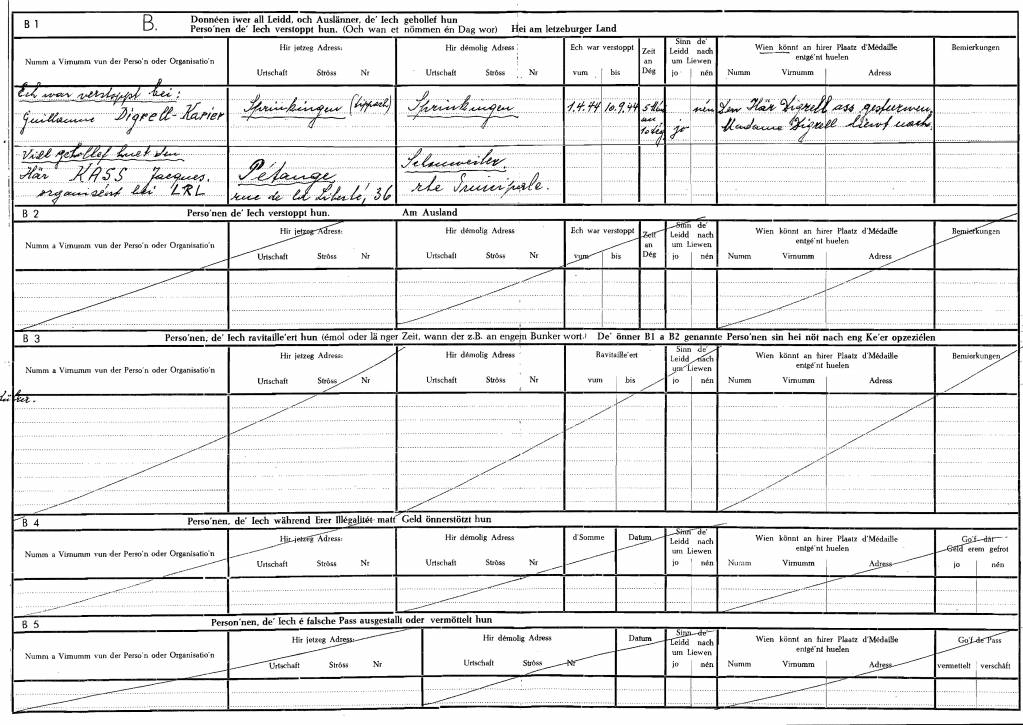 B 1
B.
Donnéen iwer all Leidd, och Auslänner, de' Iech gehollef hun
Perso'nen de' Iech verstoppt hun. (Och wan et nömmen én Dag wor) Hei am letzeburger Land
Numm a Virnumm vun der Perso'n oder Organisatio'n
Hir jetzeg Adress:
Urtschaft Ströss Nr
Hir démolig Adress
Urtschaft Ströss Nr
Ech war verstoppt
vum bis
Zeit an Dég
Sinn de' Leidd nach um Liewen
jo nén
Wien könnt an hirer Plaatz d'Médaille entgé'nt huelen
Numm Virnumm Adress
Bemierkungen
Ech war verstoppt bei:
Guillaume Digrell-Karier
Sprinkingen (Dippach)
Sprinkingen
1.4.44 10.9.44
5
10 Deg
jo
nén
Den Här Digrell ass gestuerwen,
Madame Digrell liewt nach.
Vill gehollef huet den
Här KASS Jacques.
organiséiert bei LRL
Pétange
rue de la Liberté, 36
Selsuweiler
rte Principale.
B 2
Perso'nen de' Iech verstoppt hun. Am Ausland
Numm a Virnumm vun der Perso'n oder Organisatio'n
Hir jetzeg Adress:
Urtschaft Ströss Nr
Hir démolig Adress
Urtschaft Ströss Nr
Ech war verstoppt
vum bis
Zeit an Dég
Sinn de' Leidd nach um Liewen
jo nén
Wien könnt an hirer Plaatz d'Médaille entgé'nt huelen
Numm Virnumm Adress
Bemierkungen
B 3
Perso'nen, de' Iech ravitaille'ert hun (émol oder länger Zeit, wann der z.B. an engem Bunker wort.) De' önner B1 a B2 genannte Perso'nen sin hei nöt nach eng Ke'er opzeziélen
Numm a Virnumm vun der Perso'n oder Organisatio'n
Hir jetzeg Adress:
Urtschaft Ströss Nr
Hir démolig Adress
Urtschaft Ströss Nr
Ravitaille'ert
vum bis
Sinn de' Leidd nach um Liewen
jo nén
Wien könnt an hirer Plaatz d'Médaille entgé'nt huelen
Numm Virnumm Adress
Bemierkungen
B 4
Perso'nen, de' Iech während Erer Illégalitét matt Geld önnerstötzt hun
Numm a Virnumm vun der Perso'n oder Organisatio'n
Hir jetzeg Adress:
Urtschaft Ströss Nr
Hir démolig Adress
Urtschaft Ströss Nr
d'Somme
Datum
Sinn de' Leidd nach um Liewen
jo nén
Wien könnt an hirer Plaatz d'Médaille entgé'nt huelen
Numm Virnumm Adress
Go'f dat Geld erem gefrot
jo nén
B 5
Person'nen, de' Iech é falsche Pass ausgestallt oder vermöttelt hun
Numm a Virnumm vun der Perso'n oder Organisatio'n
Hir jetzeg Adress:
Urtschaft Ströss Nr
Hir démolig Adress
Urtschaft Ströss Nr
Datum
Sinn de' Leidd nach um Liewen
jo nén
Wien könnt an hirer Plaatz d'Médaille entgé'nt huelen
Numm Virnumm Adress
Go'f de Pass
vermettelt verschäft